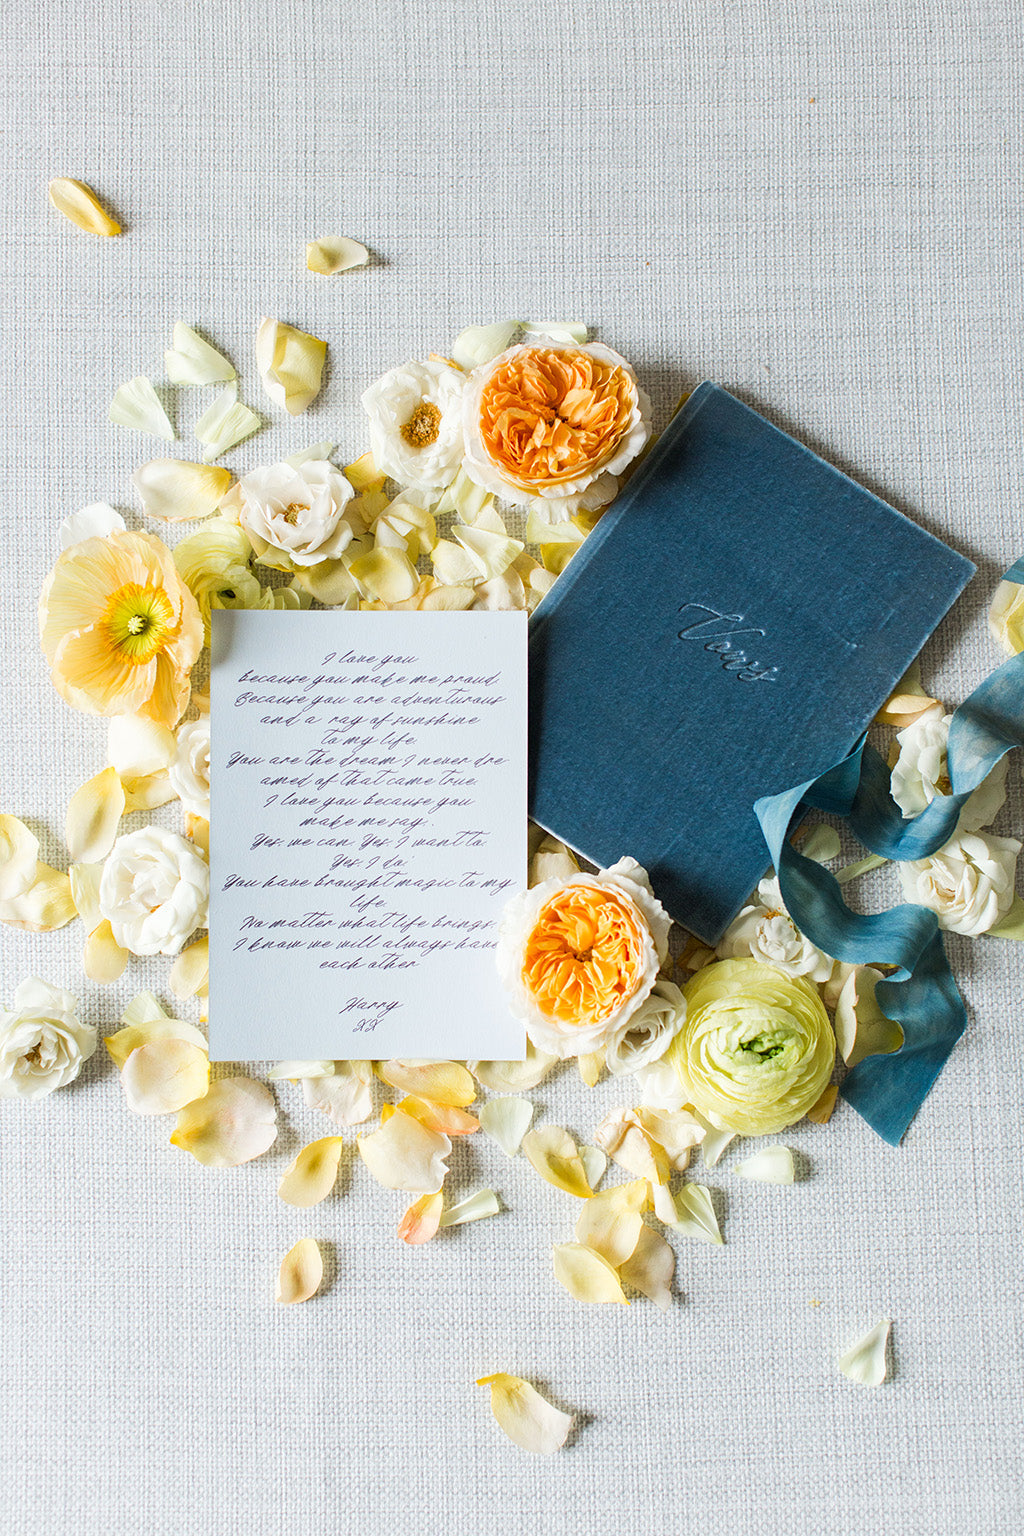 I love you
because you make me proud
Because you are adventurous
and a ray of sunshine
to my life.
You are the dream I never dre
amed of that came true.
I love you because you
make me say:
Yes, we can. Yes, I want to.
Yes, I do.
You have brought magic to my
life.
No matter what life brings,
I know we will always have
each other
Harry
XX
Vows